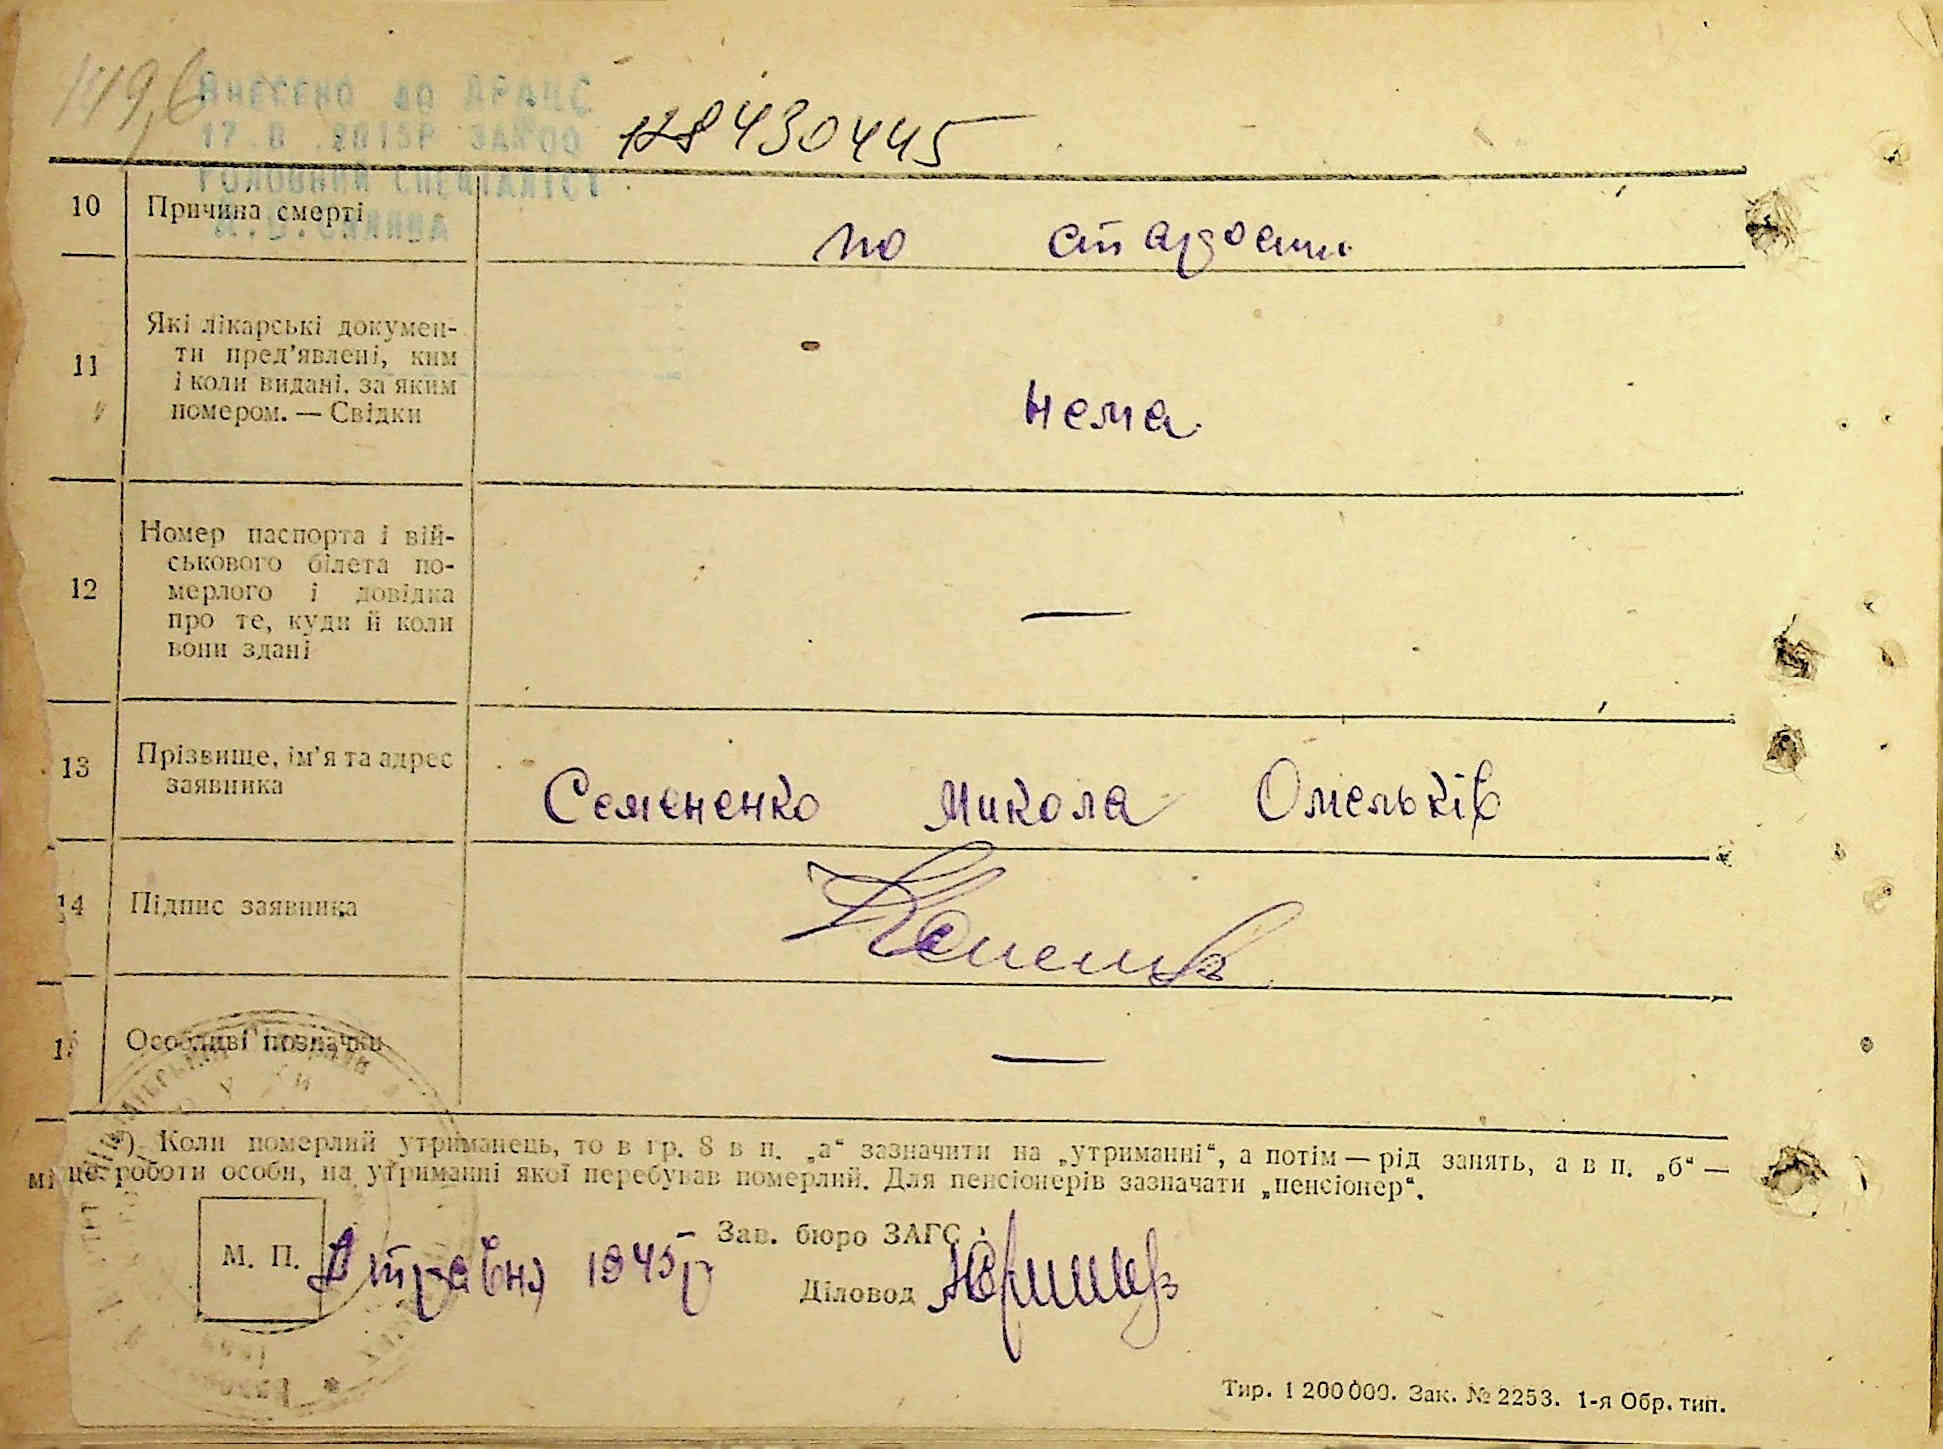 149,6
ВНЕСЕНО ДО ДРАЦС
ГОЛОВНИЙ СПЕЦІАЛІСТ
128430445
10 Причина смерті по старости
11 Які лікарські докумен-
ти пред’явлені, ким
і коли видані, за яким
номером. — Свідки
нема
12 Номер паспорта і вій-
ськового білета по-
мерлого і довідка
про те, куди й коли
вони здані
—
13 Прізвище, ім’я та адрес
заявника
Семененко Микола Омельків
14 Підпис заявника
Особливі позначки —
*) Коли померлий утриманець, то в гр. 8 в п. „а“ зазначити на „утриманні“, а потім — рід занять, а в п. „б“ —
місце роботи особи, на утриманні якої перебував померлий. Для пенсіонерів зазначати „пенсіонер“.
Зав. бюро ЗАГС
М. П.
травня 1945р
Діловод
Тир. 1 200 000. Зак. № 2253. 1-я Обр. тип.